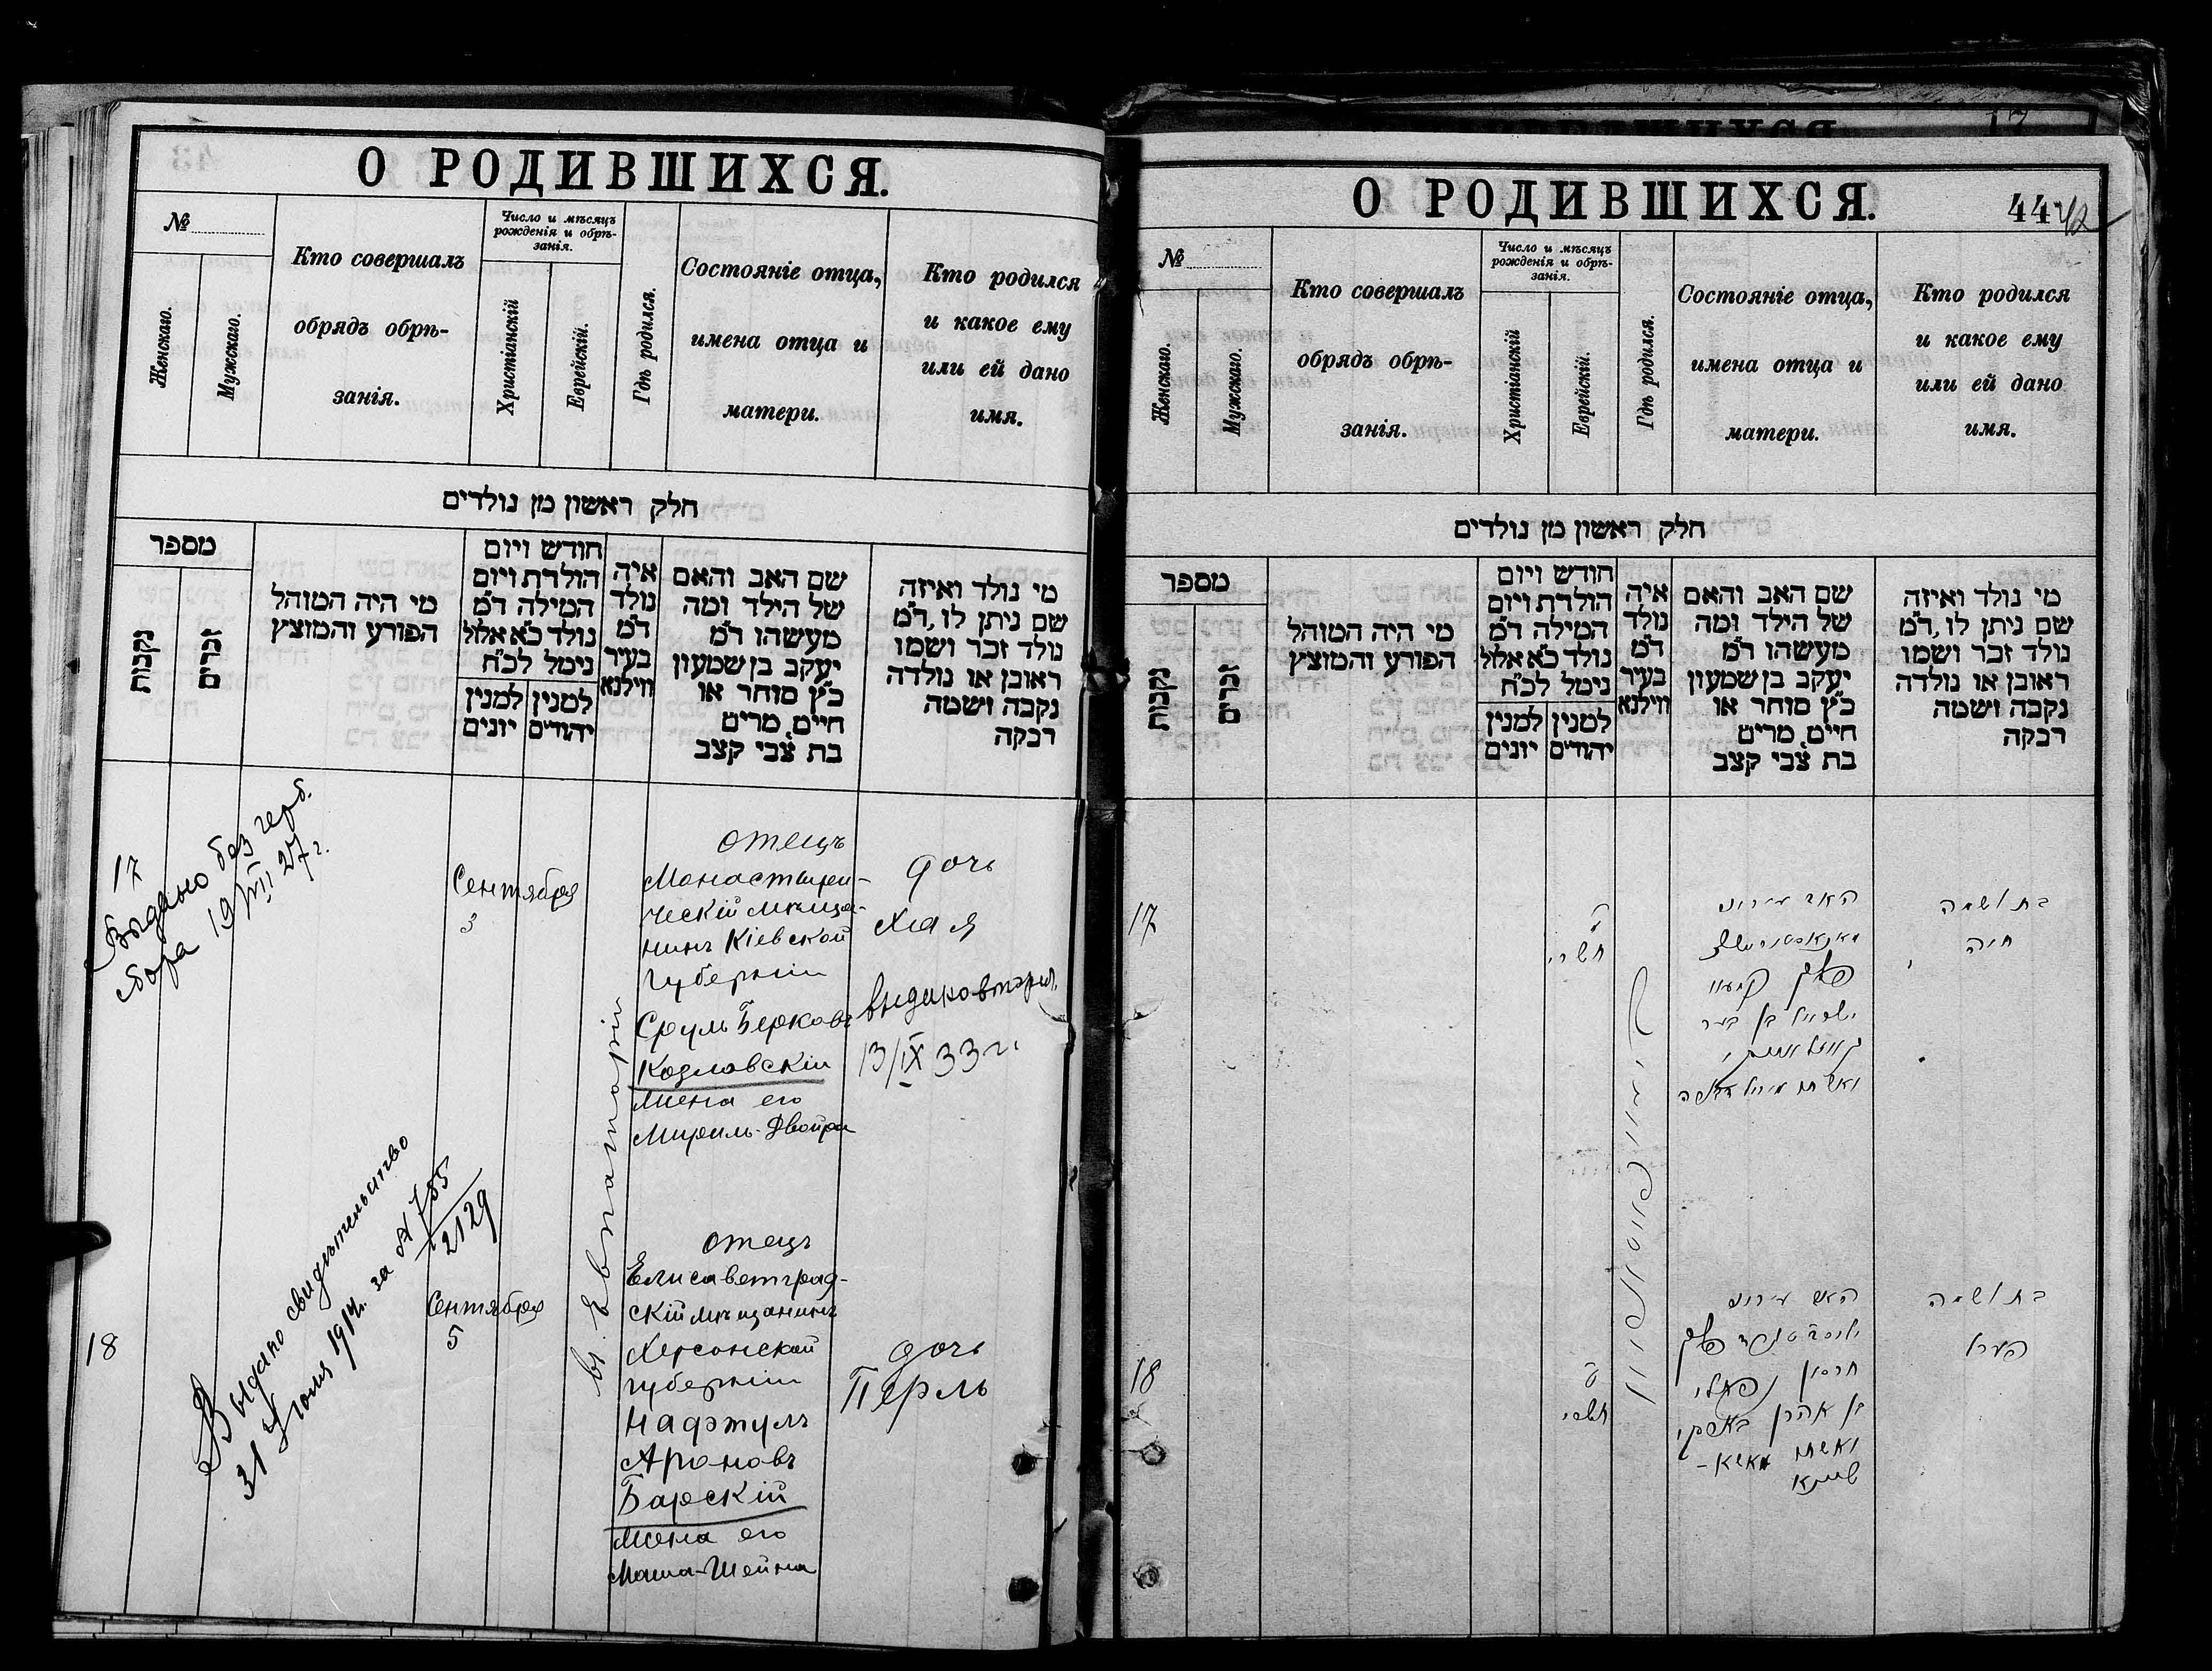 О РОДИВШИХСЯ.
№
Женскаго.
Мужскаго.
Кто совершалъ
обрядъ обрѣ-
занія.
Число и мѣсяцъ
рожденія и обрѣ-
занія.
Христіанскій
Еврейскій.
Гдѣ родился.
Состояніе отца,
имена отца и
матери.
Кто родился
и какое ему
или ей дано
имя.
חלק ראשון מן נולדים
מספר
נקבות
זכרים
מי היה המוהל
הפורע והמוצץ
חודש ויום
הולדת ויום
המילה ד״מ
נולד כ״א אלול
נימל לכ״ח
למנין יונים
למנין יהודים
איה
נולד
ד״מ
בעיר
ווילנא
שם האב והאם
של הילד ומה
מעשהו ד״מ
יעקב בן שמעון
כ״ץ סוחר או
חיים, מרים
בת צבי קצב
מי נולד ואיזה
שם ניתן לו, ד״מ
נולד זכר ושמו
ראובן או נולדה
נקבה ושמה
רבקה
17
Выдано без герб.
сбора 19/VII 27 г.
Сентября
3
в г. Евпаторіи
отецъ
Монастыри-
ческій мѣща-
нинъ Кіевской
губерніи
Сруль Берковъ
Козловскій
жена его
Мириль-Двойра
дочь
Хая
выдано вторич.
13/IX 33 г.
18
Выдано свидѣтельство
31 Іюля 1914 г. за № 755
2129
Сентября
5
отецъ
Елисаветград-
скій мѣщанинъ
Херсонской
губерніи
Нафтулъ
Ароновъ
Барскій
жена его
Маша-Шейна
дочь
Перль
О РОДИВШИХСЯ.
44
42
№
Женскаго.
Мужскаго.
Кто совершалъ
обрядъ обрѣ-
занія.
Число и мѣсяцъ
рожденія и обрѣ-
занія.
Христіанскій
Еврейскій.
Гдѣ родился.
Состояніе отца,
имена отца и
матери.
Кто родился
и какое ему
или ей дано
имя.
חלק ראשון מן נולדים
מספר
נקבות
זכרים
מי היה המוהל
הפורע והמוצץ
חודש ויום
הולדת ויום
המילה ד״מ
נולד כ״א אלול
נימל לכ״ח
למנין יונים
למנין יהודים
איה
נולד
ד״מ
בעיר
ווילנא
שם האב והאם
של הילד ומה
מעשהו ד״מ
יעקב בן שמעון
כ״ץ סוחר או
חיים, מרים
בת צבי קצב
מי נולד ואיזה
שם ניתן לו, ד״מ
נולד זכר ושמו
ראובן או נולדה
נקבה ושמה
רבקה
17
תשרי
האב עירוני
פלך קיעוו
ישראל בן בער
קאזלאווסקי
ואשתו מירל דבורה
בת ושמה
חיה
18
תשרי
האב עירוני
פלך
חרסון נפתלי
בן אהרן בארסקי
ואשתו מאשא-
שיינא
בת ושמה
פערל